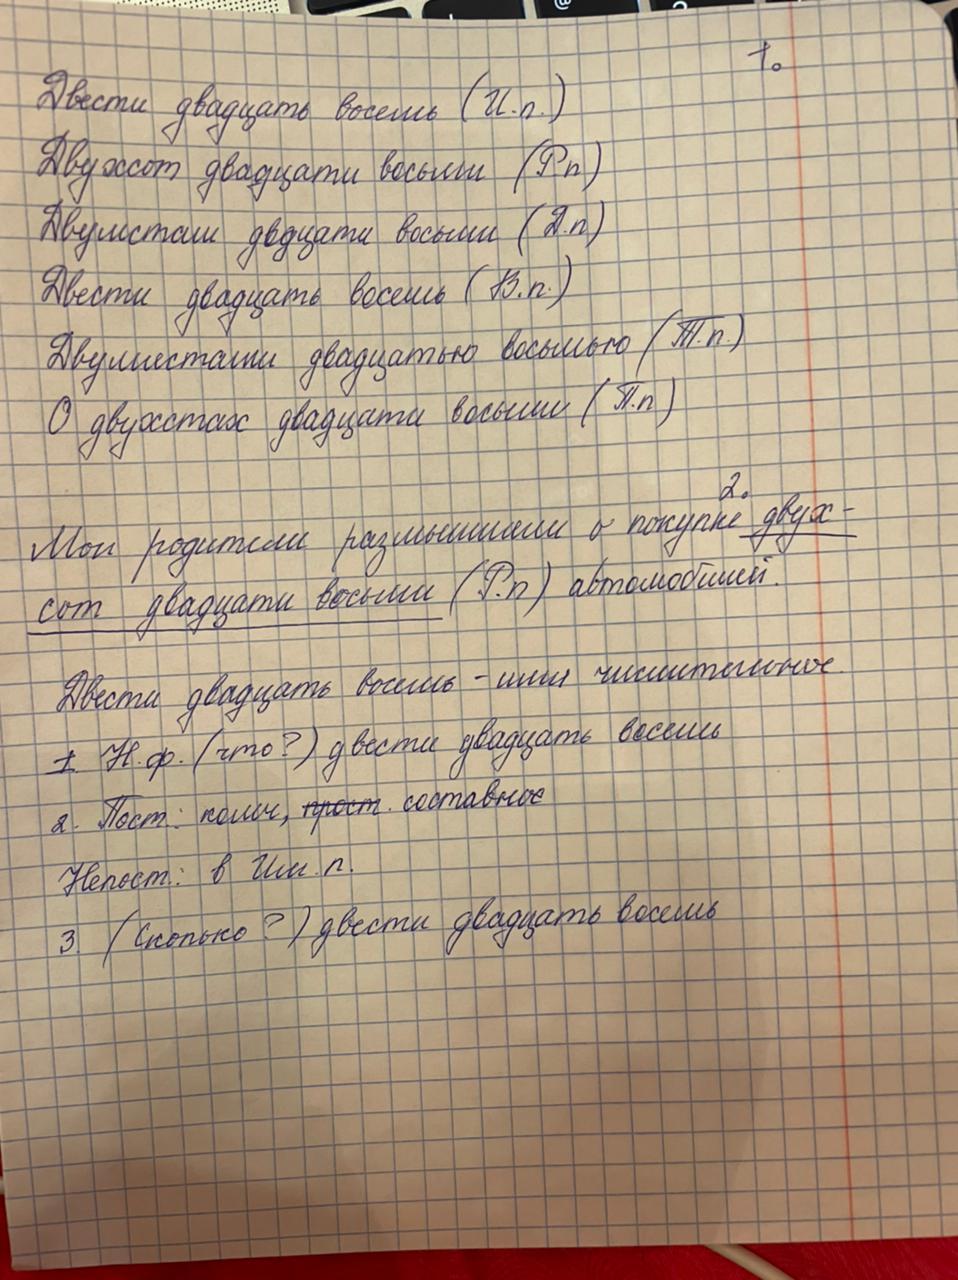 1.
Двести двадцать восемь (И.п.)
Двухсот двадцати восьми (Р.п)
Двумстам двдцати восьми (Д.п)
Двести двадцать восемь (В.п.)
Двумястами двадцатью восьмью (Т.п.)
О двухстах двадцати восьми (П.п)
2.
Мои родители размышляли о покупке двух-
сот двадцати восьми (Р.п) автомобилей.
Двести двадцать восемь - имя числительное.
1. Н.ф. (что?) двести двадцать восемь
2. Пост.: колич, прост. составное
Непост.: в Им.п.
3. (Сколько?) двести двадцать восемь